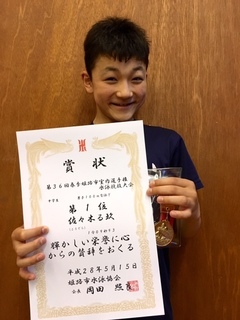 賞状
第36回春季姫路市室内選手権
水泳競技大会
第1位
佐々木る玖
輝かしい栄誉に心
からの賛辞をおくる
平成28年5月15日
姫路市水泳協会
会長 岡田